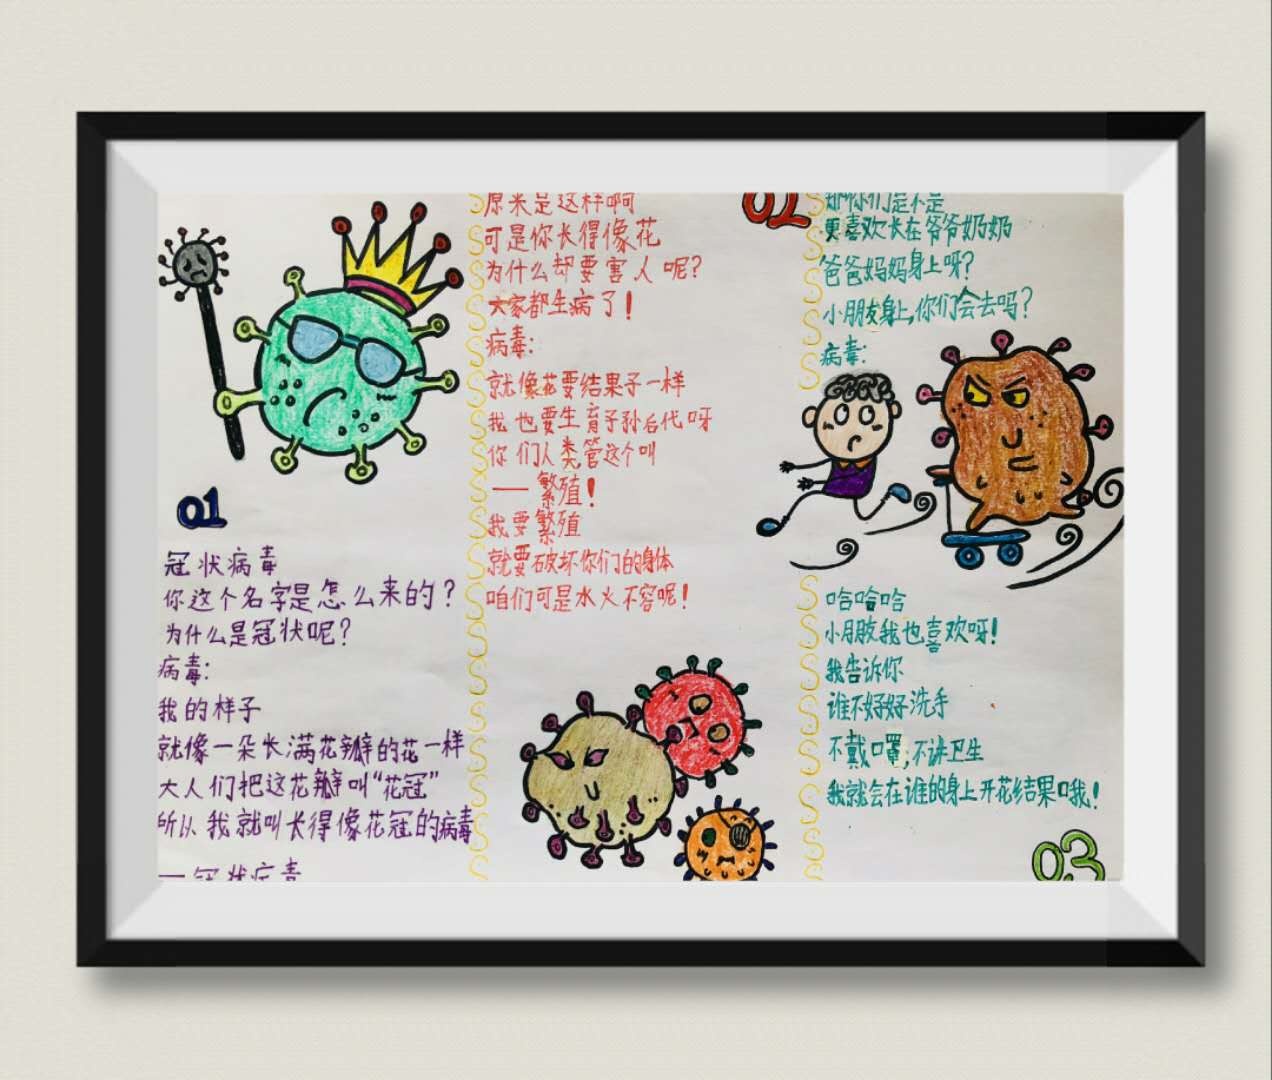 01
冠状病毒
你这个名字是怎么来的?
为什么是冠状呢?
病毒:
我的样子
就像一朵长满花瓣的花一样
大人们把这花瓣叫“花冠”
所以我就叫长得像花冠的病毒
一冠状病毒
原来是这样啊
可是你长得像花
为什么却要害人呢?
大家都生病了!
病毒:
就像花要结果子一样
我也要生育子孙后代呀
你们人类管这个叫
一繁殖!
我要繁殖
就要破坏你们的身体
咱们可是水火不容呢!
02
那你们是不是
更喜欢长在爷爷奶奶
爸爸妈妈身上呀?
小朋友身上,你们会去吗?
病毒:
哈哈哈
小朋友我也喜欢呀!
我告诉你
谁不好好洗手
不戴口罩,不讲卫生
我就会在谁的身上开花结果哦!
03